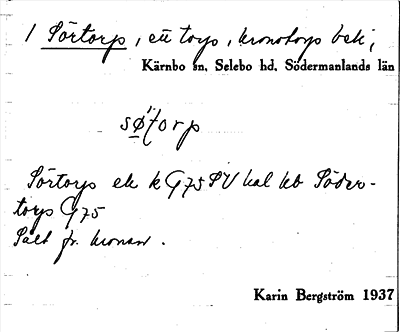 1 Sörtorp, ett torp, kronotorp bek.;
Kärnbo sn, Selebo hd, Södermanlands län
sǿtorp
Sörtorp ek k G 75 SV hal kb Söder-
torp G 75
Sålt fr. kronan.
Karin Bergström 1937